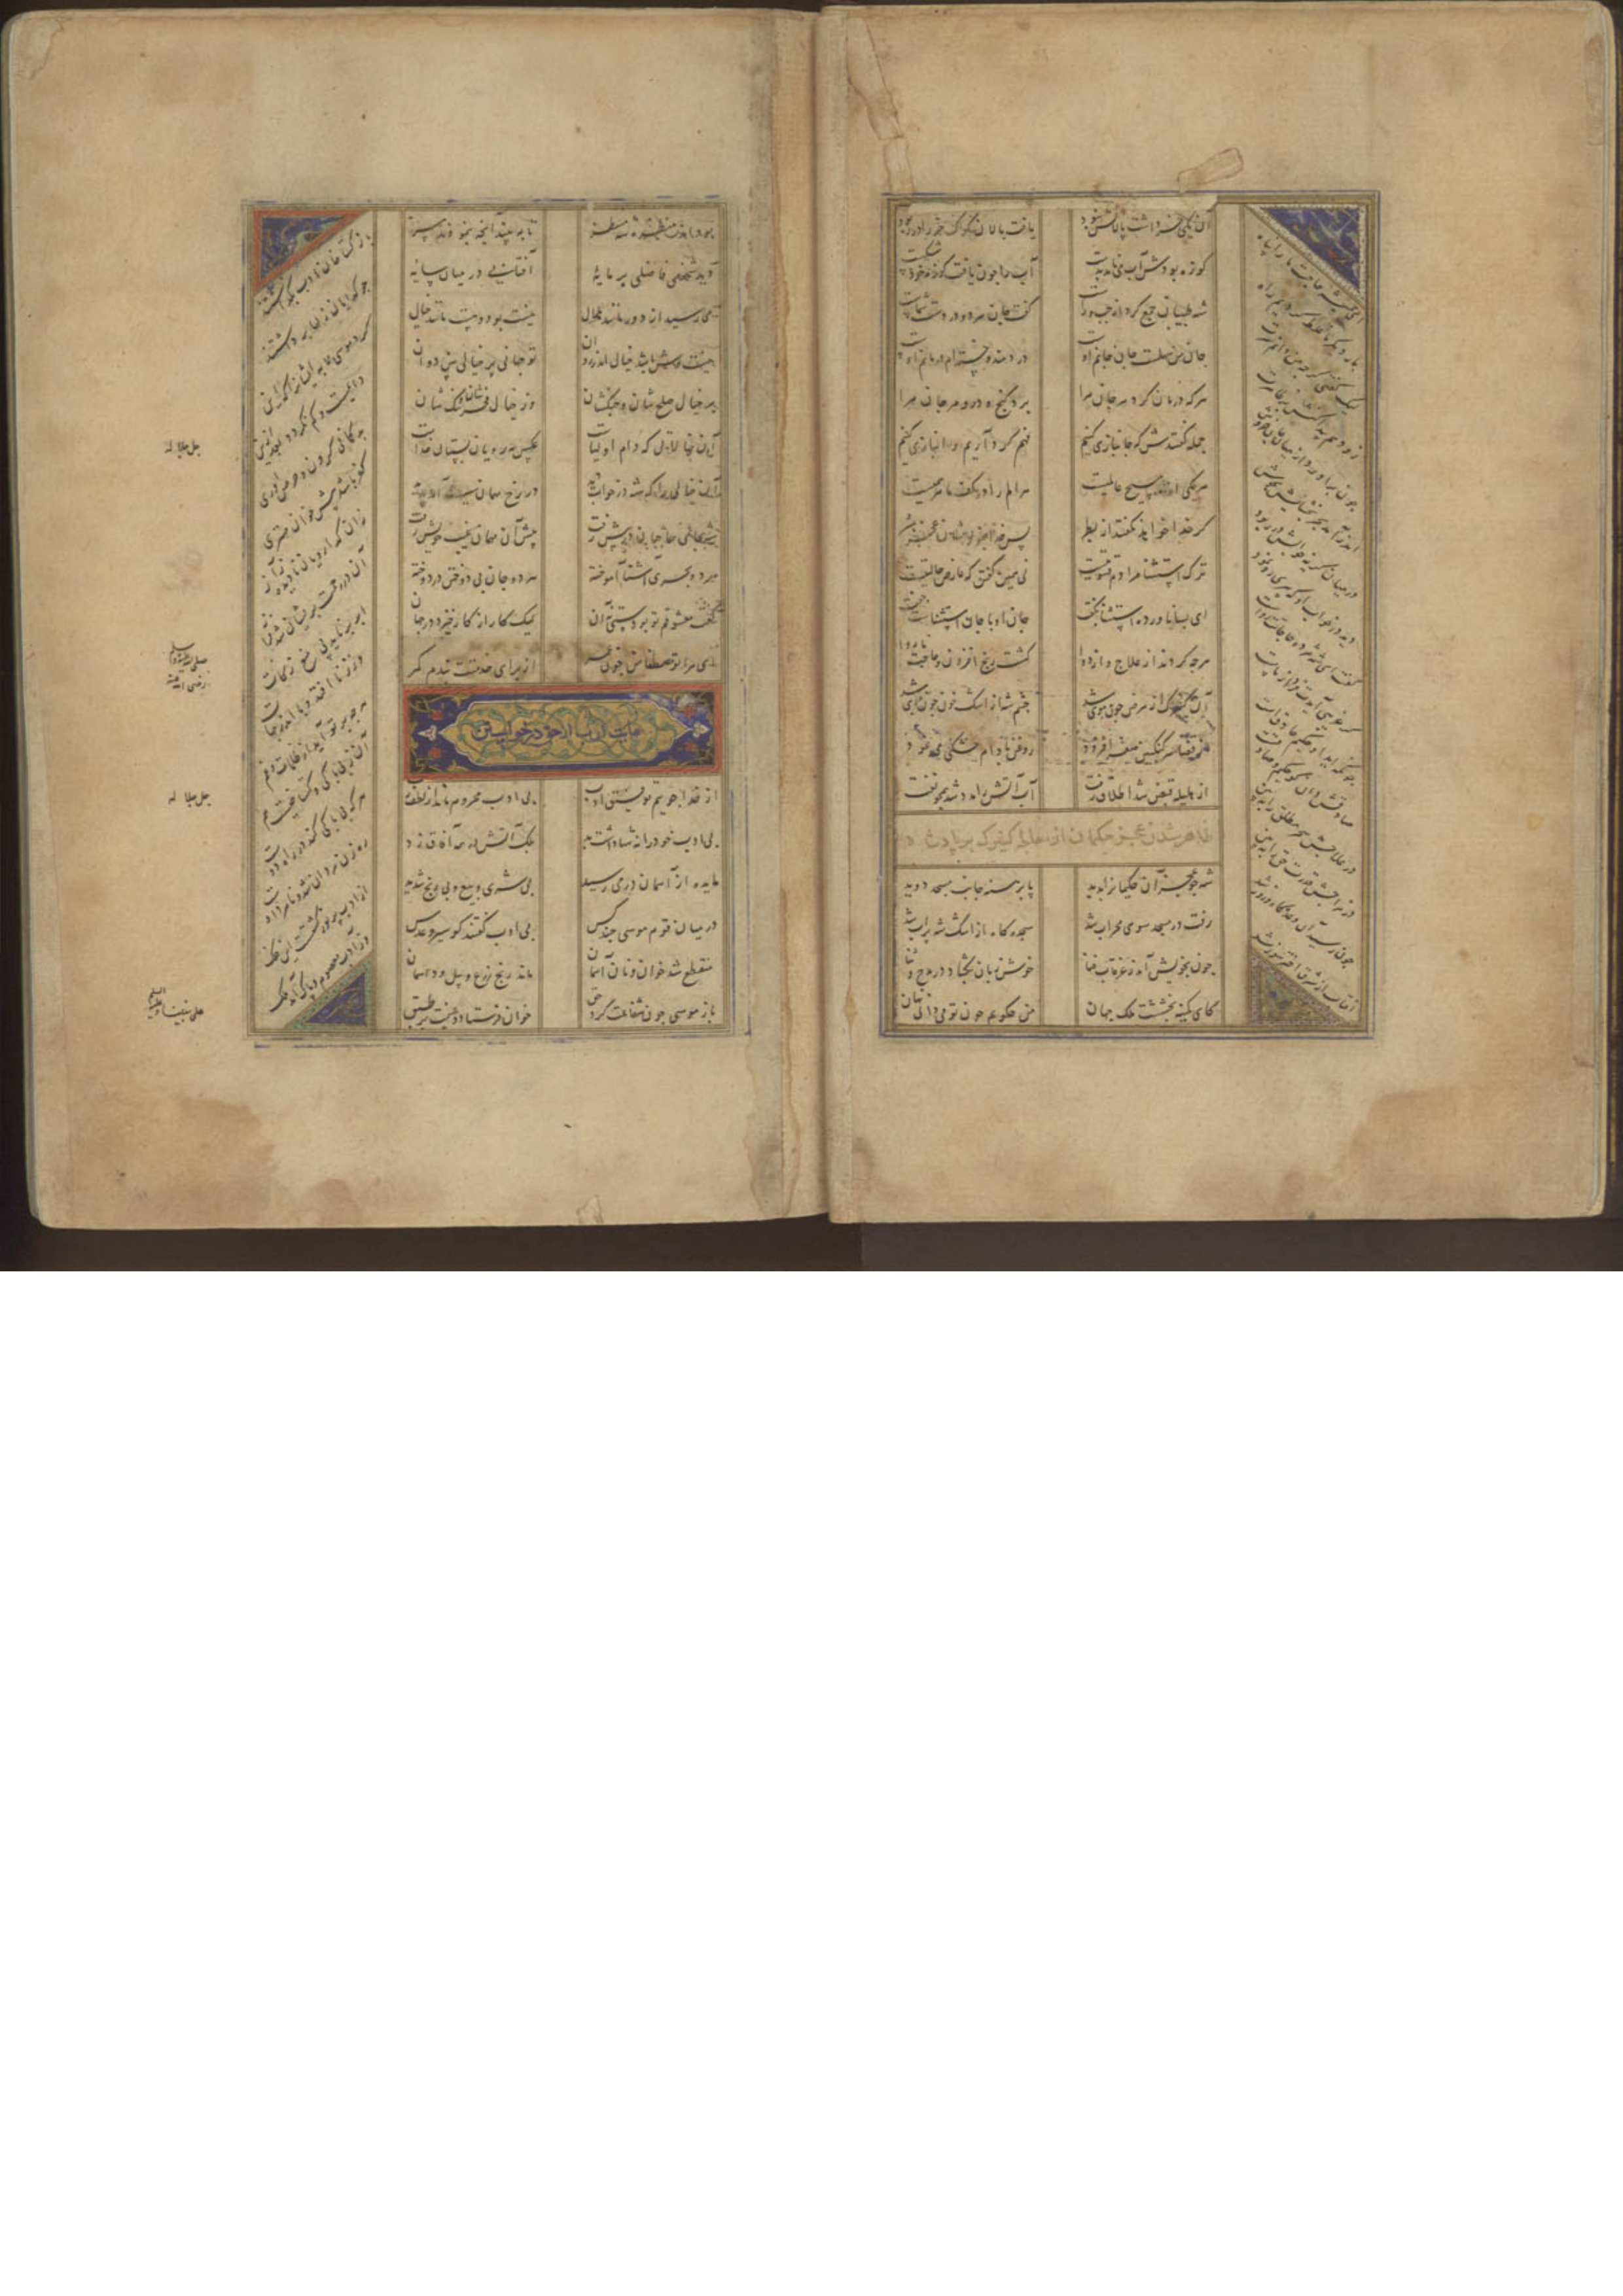 آن یکی خر داشت پالانش نبود
یافت پالان گرگ خر را در ربود
کوزه بودش آب می نامد بدست
آب را چون یافت خود کوزه شکست
شه طبیبان جمع کرد از چپ و راست
گفت جان هر دو در دست شماست
جان من سهلست جان جانم اوست
دردمند و خسته ام درمانم اوست
هرکه درمان کرد مر جان مرا
برد گنج و در و مرجان مرا
جمله گفتندش که جانبازی کنیم
فهم گرد آریم و انبازی کنیم
هر یکی از ما مسیح عالمیست
هر الم را در کف ما مرهمیست
گر خدا خواهد نگفتند از بطر
پس خدا بنمودشان عجز بشر
ترک استثنا مرادم قسوتیست
نی همین گفتن که عارض حالتیست
ای بسا ناورده استثنا بگفت
جان او با جان استثناست جفت
هرچه کردند از علاج و از دوا
گشت رنج افزون و حاجت ناروا
آن کنیزک از مرض چون موی شد
چشم شه از اشک خون چون جوی شد
از قضا سرکنگبین صفرا فزود
روغن بادام خشکی می نمود
از هلیله قبض شد اطلاق رفت
آب آتش را مدد شد همچو نفت
ظاهر شدن عجز حکیمان از معالجه کنیزک بر پادشاه
شه چو عجز آن حکیمان را بدید
پا برهنه جانب مسجد دوید
رفت در مسجد سوی محراب شد
سجده گاه از اشک شه پر آب شد
چون بخویش آمد ز غرقاب فنا
خوش زبان بگشاد در مدح و ثنا
کای کمینه بخششت ملک جهان
من چگویم چون تو می دانی نهان
ای همیشه حاجت ما را پناه
بار دیگر ما غلط کردیم راه
لیک گفتی گرچه می دانم سرت
زود هم پیدا کنش بر ظاهرت
چون برآورد از میان جان خروش
اندر آمد بحر بخشایش بجوش
درمیان گریه خوابش در ربود
دید در خواب او که پیری رو نمود
گفت ای شه مژده حاجاتت رواست
گر غریبی آیدت فردا ز ماست
چونکه آید او حکیم حاذقست
در علاجش سحر مطلق را ببین
در مزاجش قدرت حق را ببین
چون رسید آن وعده گاه و روز شد
آفتاب از شرق اختر سوز شد
بود اندر منظره شه منتظر
تا ببیند آنچه بنمودند سر
دید شخصی فاضلی پر مایه
آفتابی در میان سایه
می رسید از دور مانند هلال
نیست بود و هست مانند خیال
نیست وش باشد خیال اندر روان
تو جهانی بر خیالی بین روان
بر خیالی صلح شان و جنگ شان
وز خیالی فخرشان و ننگ شان
آن خیالاتی که دام اولیاست
عکس مه رویان بستان خداست
آن خیالی را که شه در خواب دید
در رخ مهمان همی آمد پدید
شه بجای حاجبان در پیش رفت
پیش آن مهمان غیب خویش رفت
هر دو بحری آشنا آموخته
هر دو جان بی دوختن بر دوخته
گفت معشوقم تو بودستی نه آن
لیک کار از کار خیزد در جهان
ای مرا تو مصطفی من چون عمر
از برای خدمتت بندم کمر
از خدا جویم توفیق ادب
بی ادب محروم ماند از لطف رب
بی ادب خود را نه تنها داشت بد
بلک آتش در همه آفاق زد
مایده از آسمان در می رسید
بی شری و بیع و بی رنج شدید
در میان قوم موسی چند کس
بی ادب گفتند کو سیر و عدس
منقطع شد خوان و نان آسمان
ماند رنج زرع و بیل و داسمان
باز موسی چون شفاعت کرد حق
خوان فرستاد و غنیمت بر طبق
باز گستاخان ادب بگذاشتند
چو گدایان زله ها برداشتند
دایمست و کم نگردد از زمین
بدگمانی کردن و حرص آوری
کفر باشد پیش خوان مهتری
زان گدارویان نادیده ز آز
آن در رحمت بریشان شد فراز
ابر برناید پی منع زکات
وز زنا افتد وبا اندر جهات
هرچه بر تو آید از ظلمات و غم
آن ز بی باکی و گستاخیست هم
هرکه بی باکی کند در راه دوست
ره زن مردان شد و نامرد اوست
از ادب پر نور گشتست این فلک
وز ادب معصوم و پاک آمد ملک
جل جلاله
جل جلاله